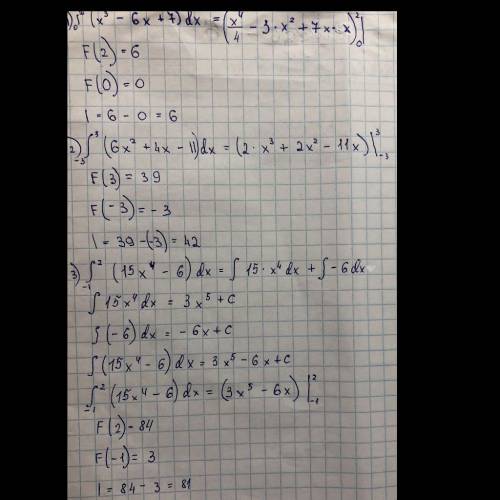 1) ∫₀² (x³ - 6x + 7) dx = (x⁴/4 - 3·x² + 7x·x)|₀²
F(2) = 6
F(0) = 0
I = 6 - 0 = 6
2) ∫₋₃³ (6x² + 4x - 11) dx = (2·x³ + 2x² - 11x)|₋₃³
F(3) = 39
F(-3) = -3
I = 39 - (-3) = 42
3) ∫₋₁² (15x⁴ - 6) dx = ∫ 15·x⁴ dx + ∫ -6 dx
∫ 15x⁴ dx = 3x⁵ + C
∫ (-6) dx = -6x + C
∫ (15x⁴ - 6) dx = 3x⁵ - 6x + C
∫₋₁² (15x⁴ - 6) dx = (3x⁵ - 6x)|₋₁²
F(2) = 84
F(-1) = 3
I = 84 - 3 = 81